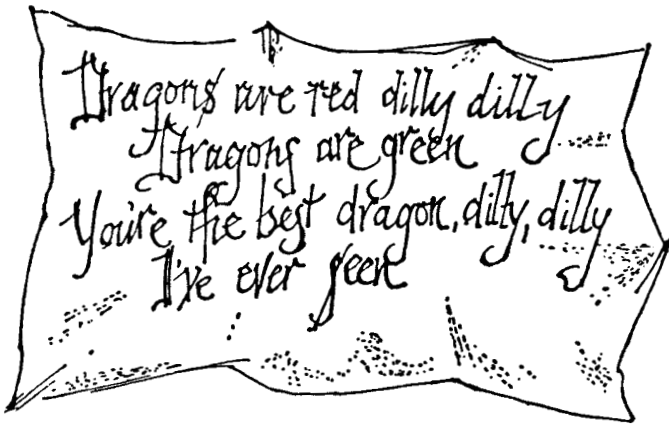 Dragons are red dilly dilly
Dragons are green
You're the best dragon, dilly, dilly
I've ever seen